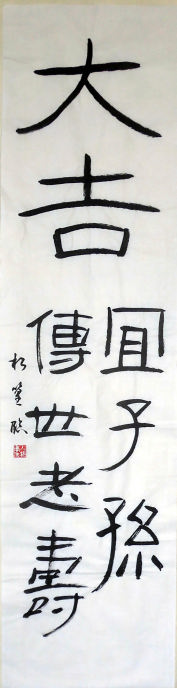 大吉
宜子孫
傳世老壽